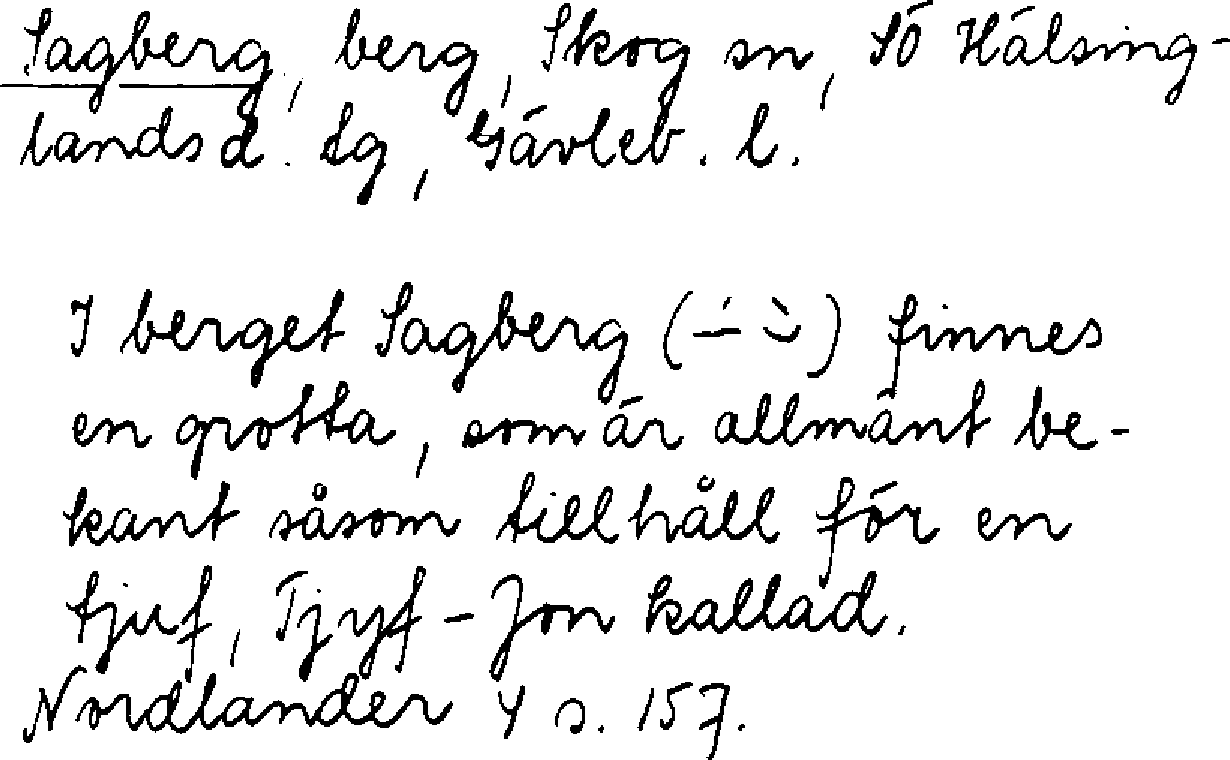 Sagberg, berg, Skog sn, SÖ Hälsing-
lands d. sg, Gävleb. l.
I berget Sagberg (–́ ⏑̀) finnes
en grotta, som är allmänt be-
kant såsom tillhåll för en
tjuf, Tjyf-Jon kallad.
Nordlander 4 s. 157.